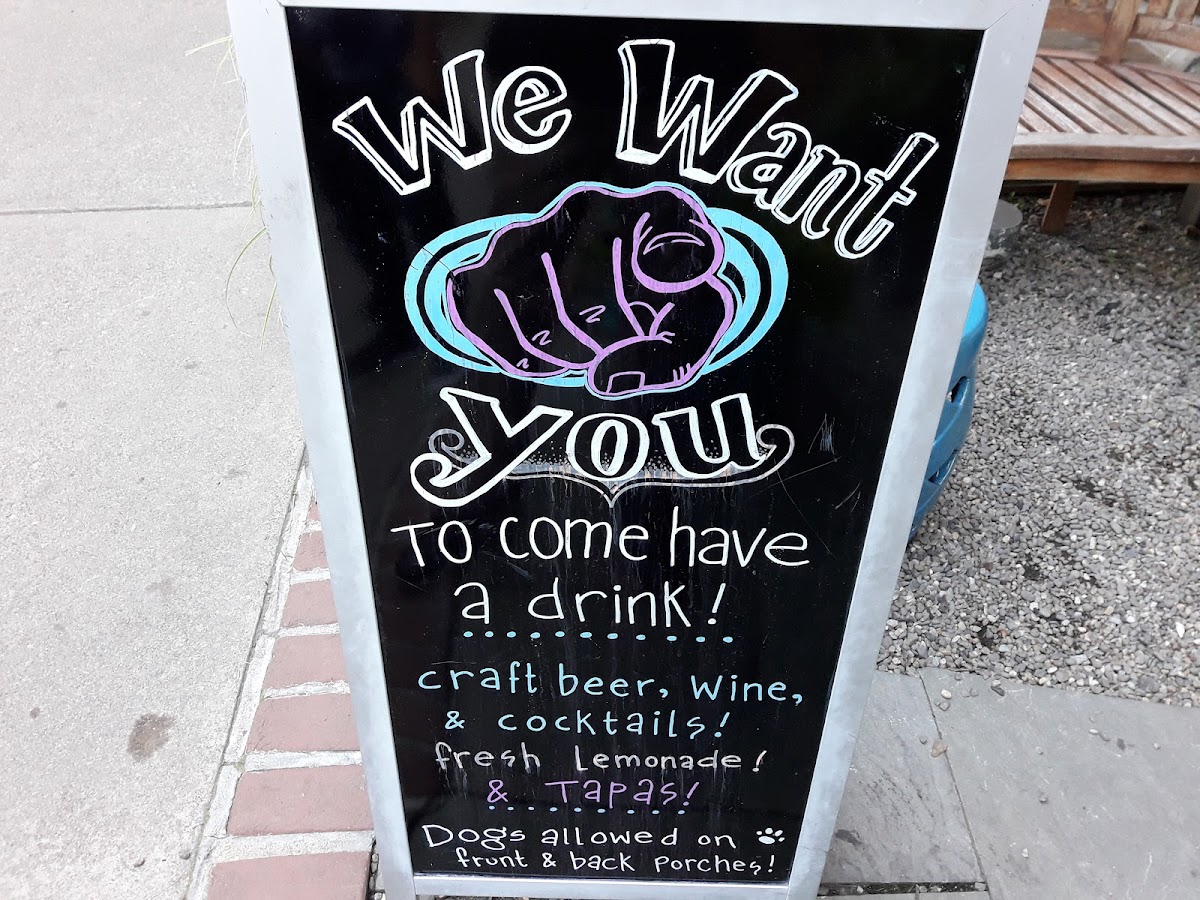 We Want
you
To come have
a drink!
craft beer, wine,
& cocktails!
fresh Lemonade!
& Tapas!
Dogs allowed on
frunt & back porches!